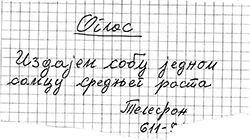 Оглас
Издајем собу једном
самцу средњег раста
Телефон
611-